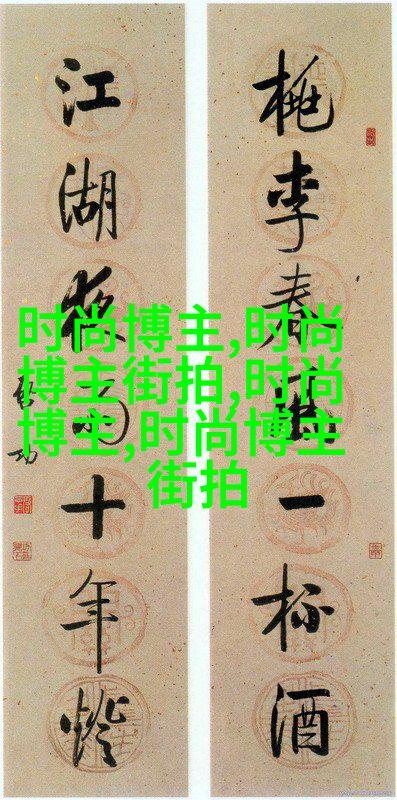 桃李春風一杯酒
江湖夜雨十年燈
启功
时尚博主,时尚
博主街拍,时尚
博主,时尚博主
街拍